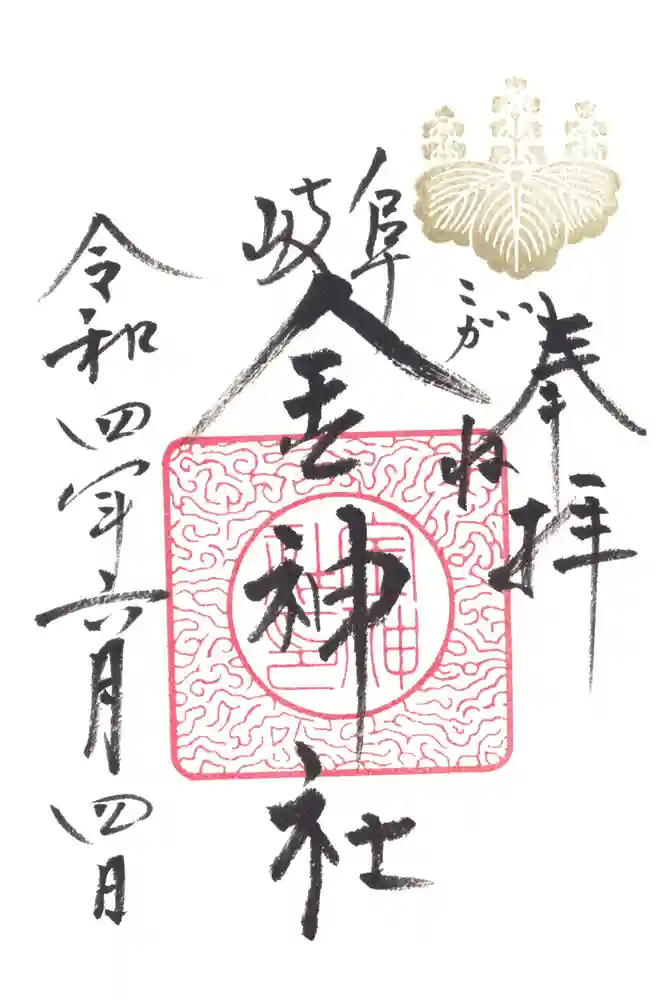 奉拝
こがね
岐阜
金神社
令和四年六月四日